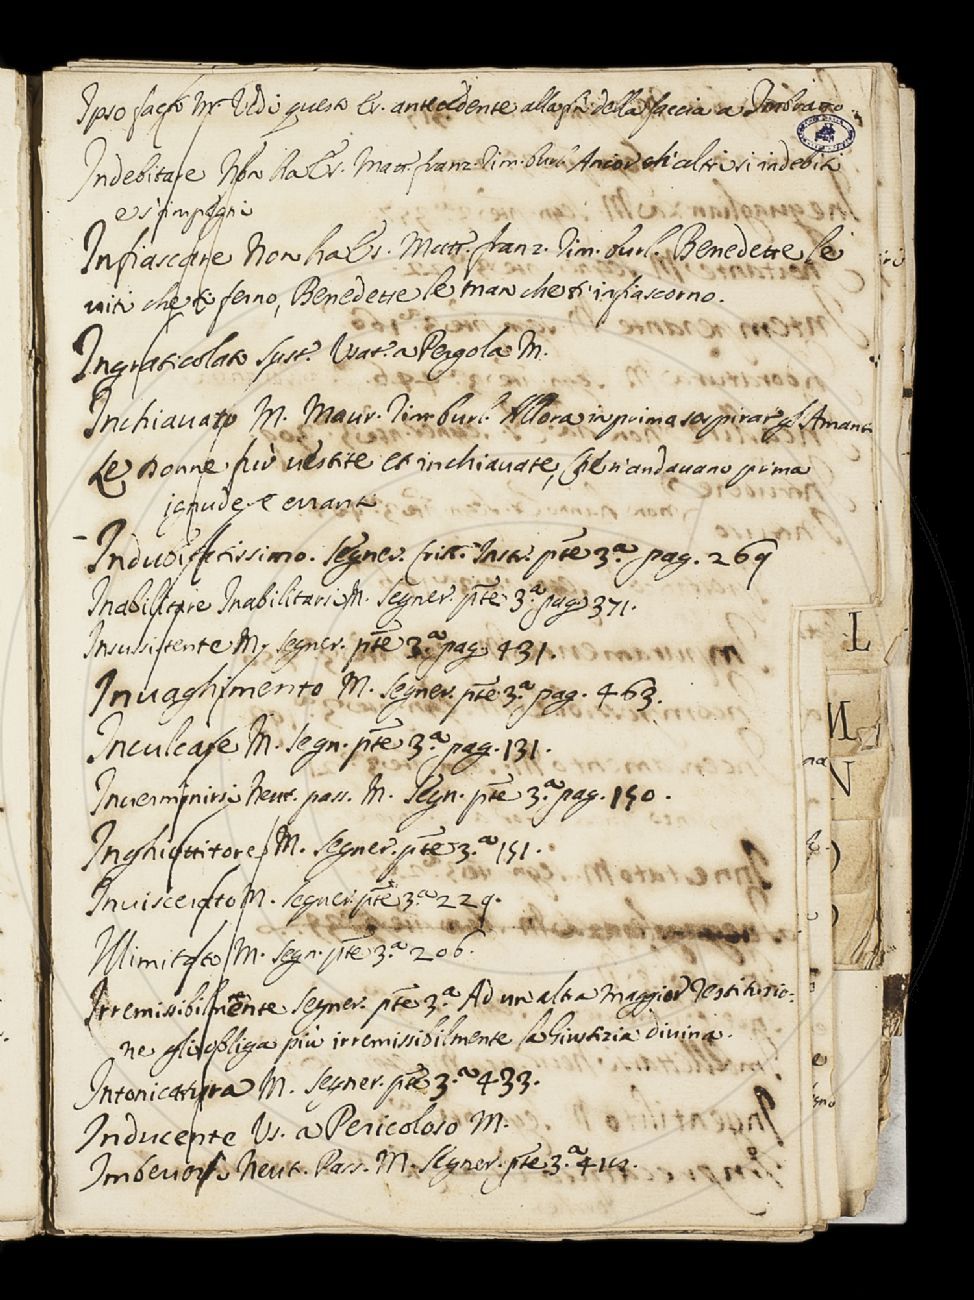 Ipso facto M. Vedi questo Es. antecedente alla fin della faccia a Imbratto
Indebitare Non ha Es. Matt. franz. Rim. burl. Ancor ch'altri s'indebiti
e s'impegni
Infiascare Non ha Es. Matt. franz. Rim. burl. Benedette le
viti che ti ferno, Benedette le man che t'infiascorno.
Ingraticolato sust. Usat. a Pergola M.
Inchiavato M. Maur. Rim. burl. Allora in prima sospirar gl'Amanti
Le Donne fur vestite et inchiavate, Che n'andavano prima
ignude e erranti
- Indubitatissimo. Segner. Crist. Instr. pte 3.a pag. 269
Inabilitare Inabilitarsi M. Segner. pte 3.a pag 371.
Insussistente M. Segner. pte 3.a pag 431.
Invaghimento M. Segner. pte 3.a pag. 463.
Inculcare M. Segn. pte 3.a pag. 131.
Inverminirsi Neut. pass. M. Segn. pte 3.a pag. 150.
Inghiottitore M. Segner. pte 3.a 151.
Inviscerato M. Segner. pte 3.a 229.
Illimitato M. Segn. pte 3.a 206.
Irremissibilmente Segner. pte 3.a Ad un altra maggior restituzio-
ne gli obliga più irremissibilmente la Giustizia divina.
Intonicatura M. Segner. pte 3.a 433.
Inducente Us. a Pericoloso M.
Imbeversi Neut. Pass. M. Segner. pte 3.a